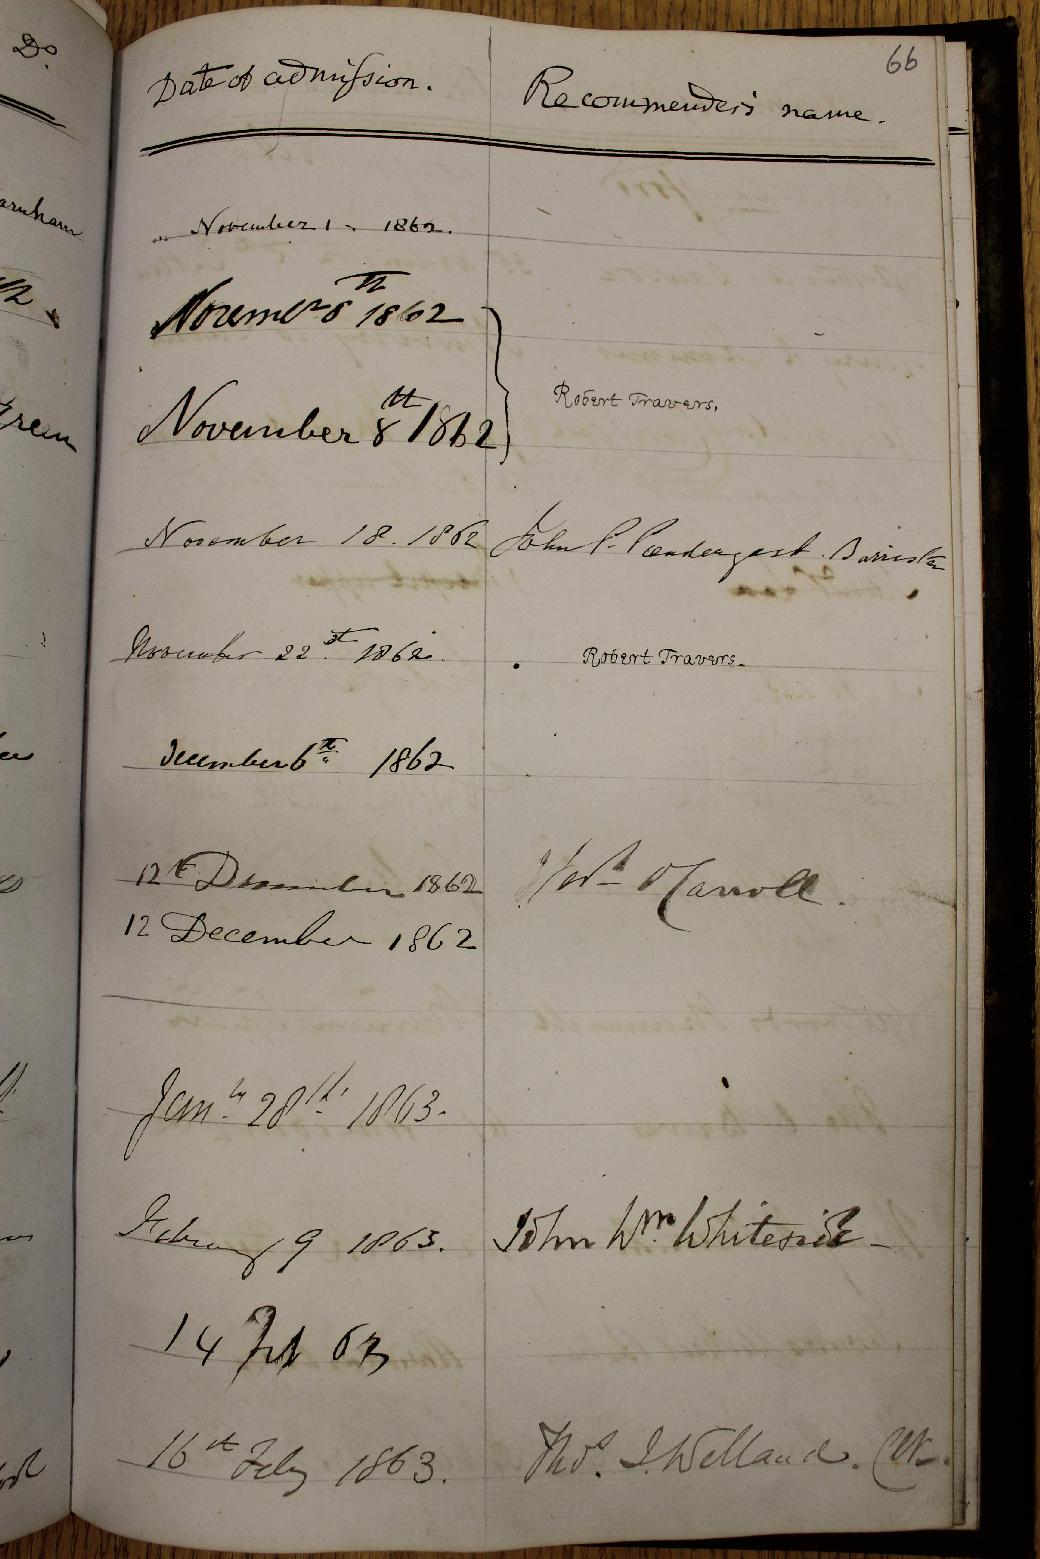 Do.
66
Date of admission. Recommender's name.
arnham
November 1 - 1862.
November 8th 1862
November 8th 1862
Robert Travers.
Green
November 18. 1862 John P. Prendergast. Barrister
November 22st 1862. Robert Travers.
December 6th 1862
12th December 1862 O'Carroll.
12 December 1862
Jany. 28th. 1863.
February 9 1863. John Wm. Whiteside
14 Feb 63
16th Feby 1863. Thos. J. Welland. Clk.